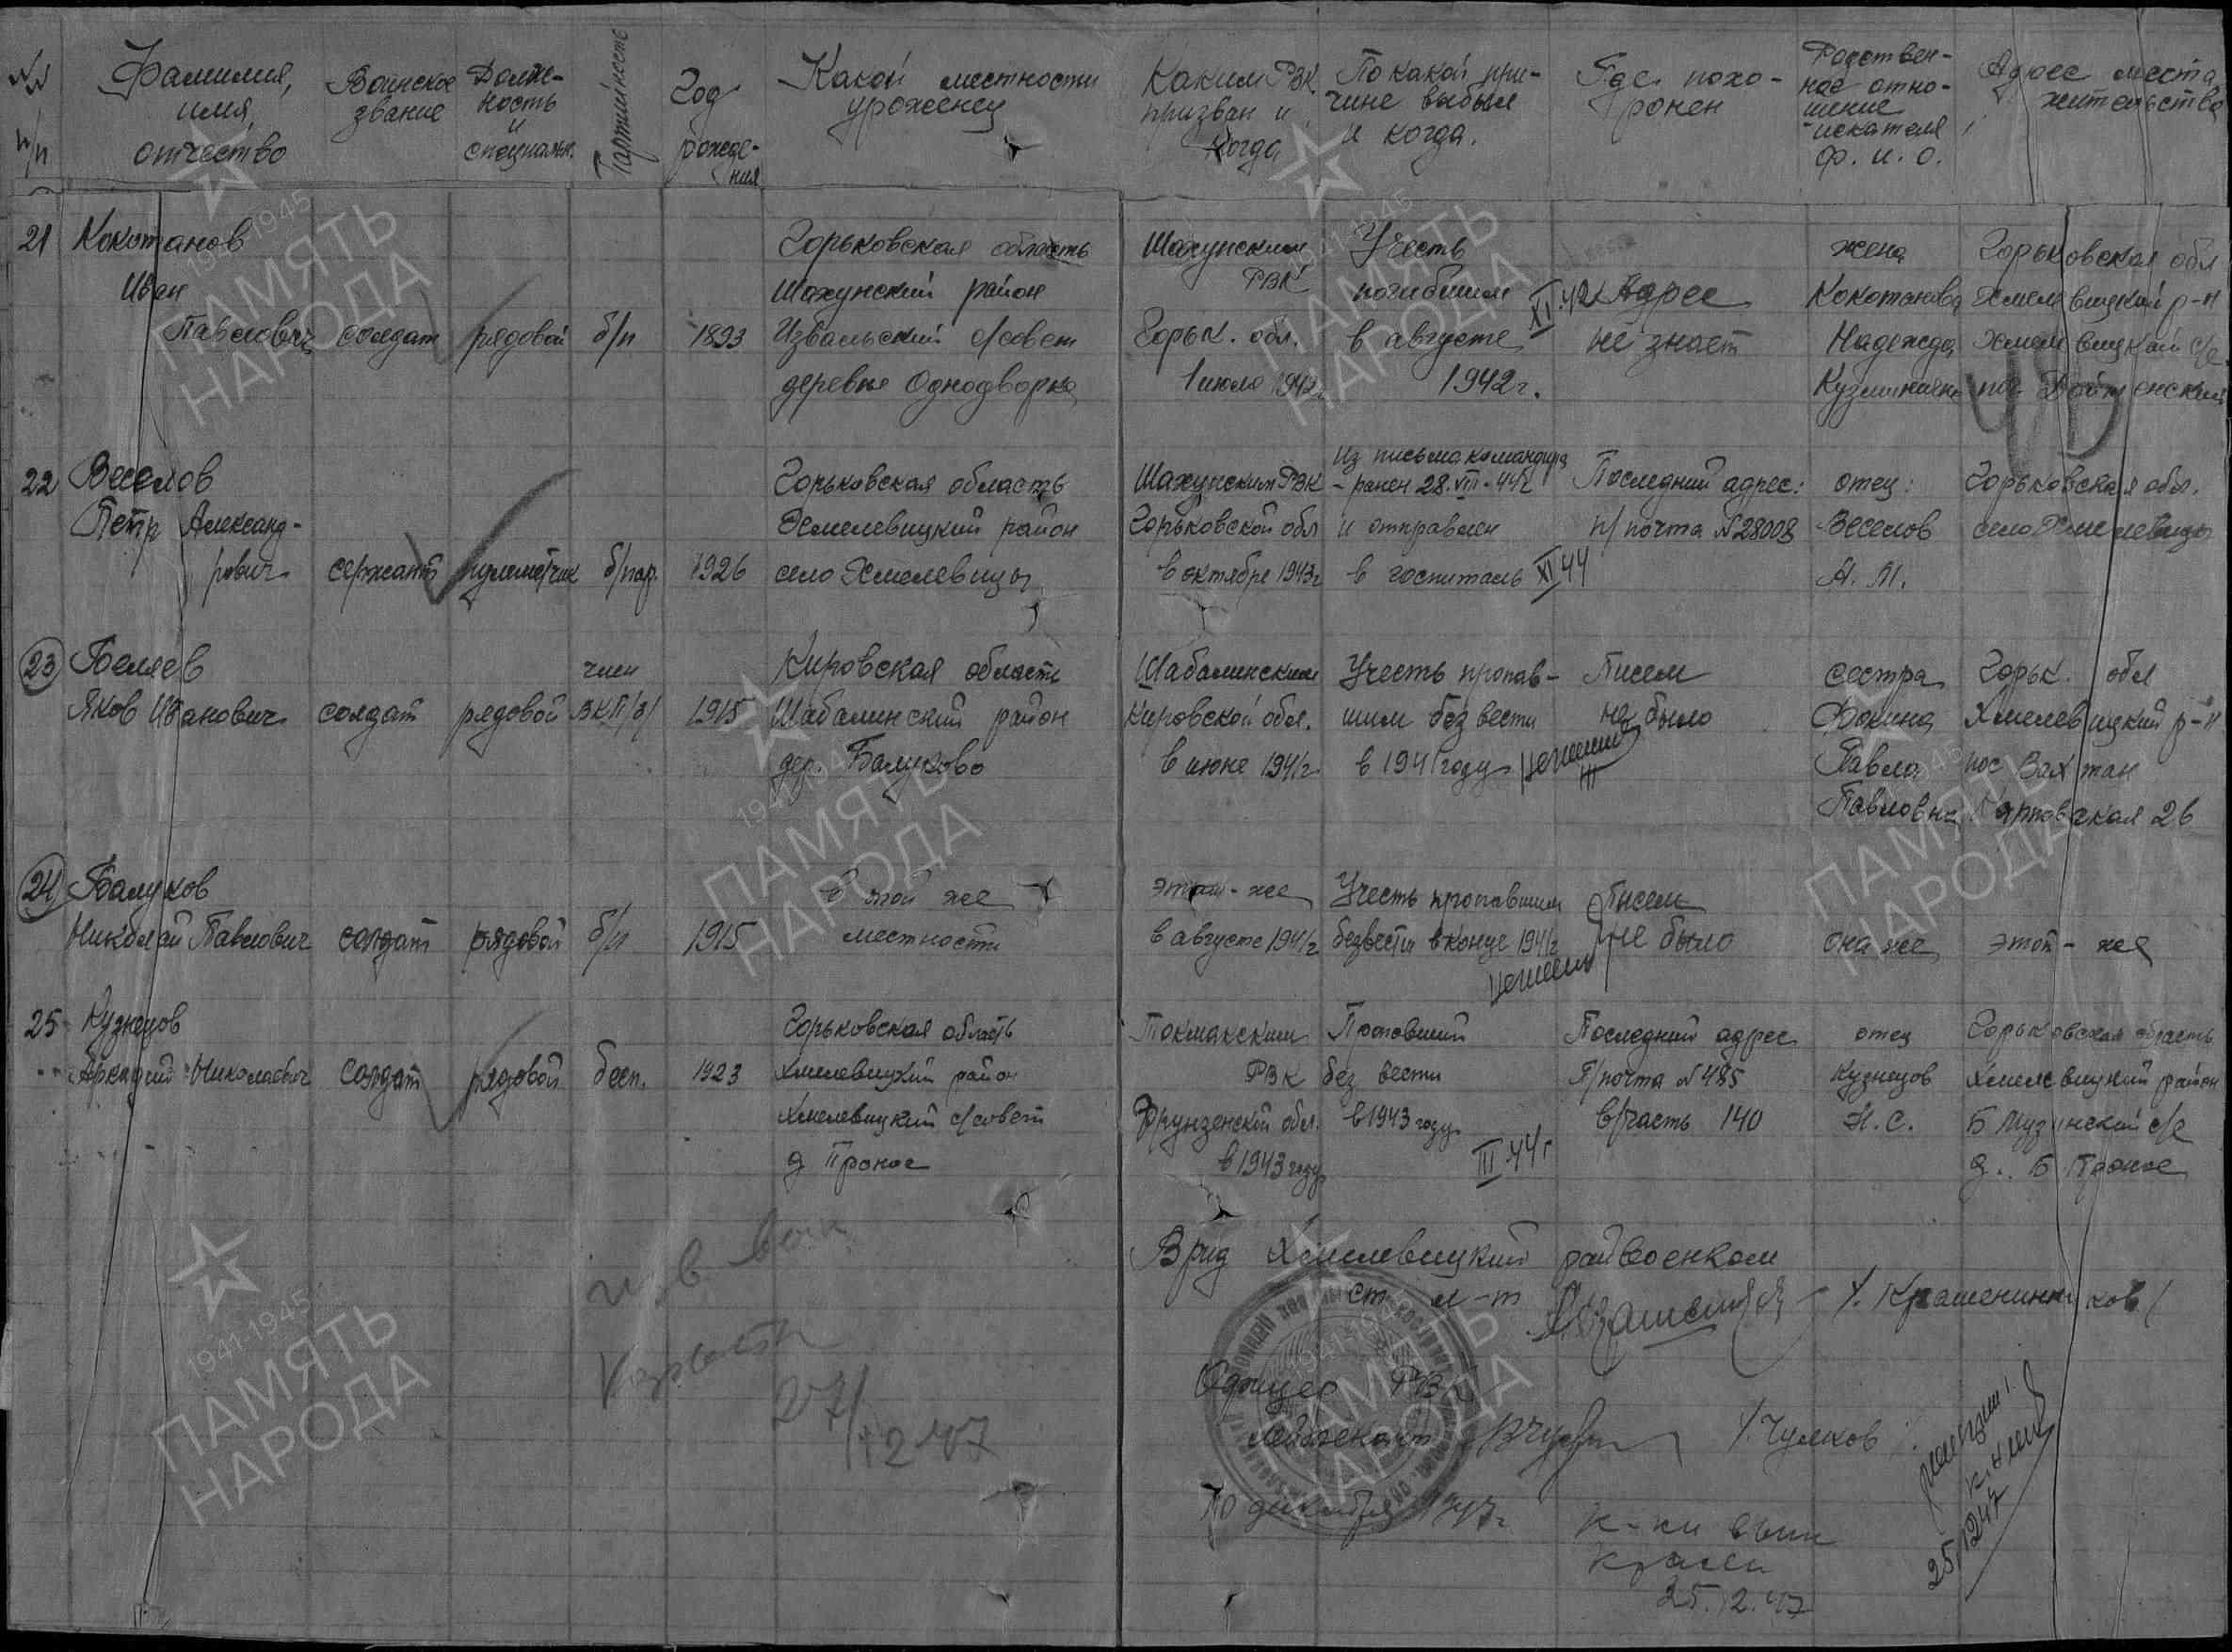 №№ п/п
Фамилия, имя, отчество
Воинское звание
Долж-
ность
и
специальн.
Партийность
Год
рожде-
ния
Какой местности
уроженец
Каким РВК
призван и
когда
По какой при-
чине выбыл
и когда.
Где похо-
ронен
Родствен-
ное отно-
шение
искателя
ф. и. о.
Адрес места
жительства
21 Кокотанов
Иван
Павлович солдат рядовой б/п 1893
Горьковская область
Шахунский район
Извальский с/совет
деревня Однодворка
Шахунским
РВК
Горьк. обл.
1 июля 1942г
Учесть
погибшим
в августе
1942г.
XI.42
Адрес
не знает
жена
Кокотанова
Надежда
Кузминична
Горьковская обл
Хмелевицкий р-н
Хмелевицкий с/с
пос.
22 Веселов
Петр Александ-
рович сержант пулеметчик б/пар. 1926
Горьковская область
Хмелевицкий район
село Хмелевицы
Шахунским РВК
Горьковской обл
в октябре 1943г
Из письма командира
- ранен 28.VIII-44г
и отправлен
в госпиталь XI 44
Последний адрес:
п/почта №28008
отец:
Веселов
А. М.
Горьковская обл.
село Хмелевицы
23 Беляев
Яков Иванович солдат рядовой
член
ВКП/б/ 1915
Кировская область
Шабалинский район
дер. Балуково
Шабалинским
Кировской обл.
в июне 1941г
Учесть пропав-
шим без вести
в 1941 году
Писем
не было
сестра
Фокина
Павла
Павловна
Горьк. обл
Хмелевицкий р-н
пос Вахтан
26
24 Балуков
Николай Павлович солдат рядовой б/п 1915
в той же
местности
этим-же
в августе 1941г
Учесть пропавшим
безвести в конце 1941г
Писем
не было
она же
этот-же
25 Кузнецов
Аркадий Николаевич солдат рядовой бесп. 1923
Горьковская область
Хмелевицкий район
Хмелевицкий с/совет
д Проное
Токмакским
РВК
Фрунзенской обл.
в 1943 году
Пропавший
без вести
в 1943 году
III.44г
Последний адрес
П/почта №485
в/часть 140
отец
Кузнецов
Н. С.
Горьковская область
Хмелевицкий район
Б Музянский с/с
д. Б Проное
Врид Хмелевицкий райвоенком
ст л-т /. Крашенинников /
Офицер РВК
лейтенант /. Чулков /.
10 декабря 1947г.
27/12 47
25.12.47
25/12 47
1941-1945
ПАМЯТЬ
НАРОДА